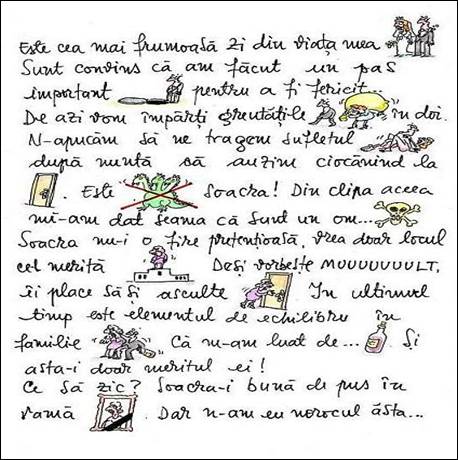 Este cea mai frumoasă zi din viața mea
Sunt convins că am făcut un pas
important pentru a fi fericit...
De azi vom împărți greutățile în doi.
N-apucăm să ne tragem sufletul
după nuntă că auzim ciocănind la
. Este soacra! Din clipa aceea
mi-am dat seama că sunt un om...
Soacra nu-i o fire pretențioasă, vrea doar locul
cel merită Deși vorbește MUUUUUUULT,
îi place să și asculte În ultimul
timp este elementul de echilibru în
familie Că m-am luat de... Și
asta-i doar meritul ei!
Ce să zic? Soacra-i bună de pus în
ramă . Dar n-am eu norocul ăsta...